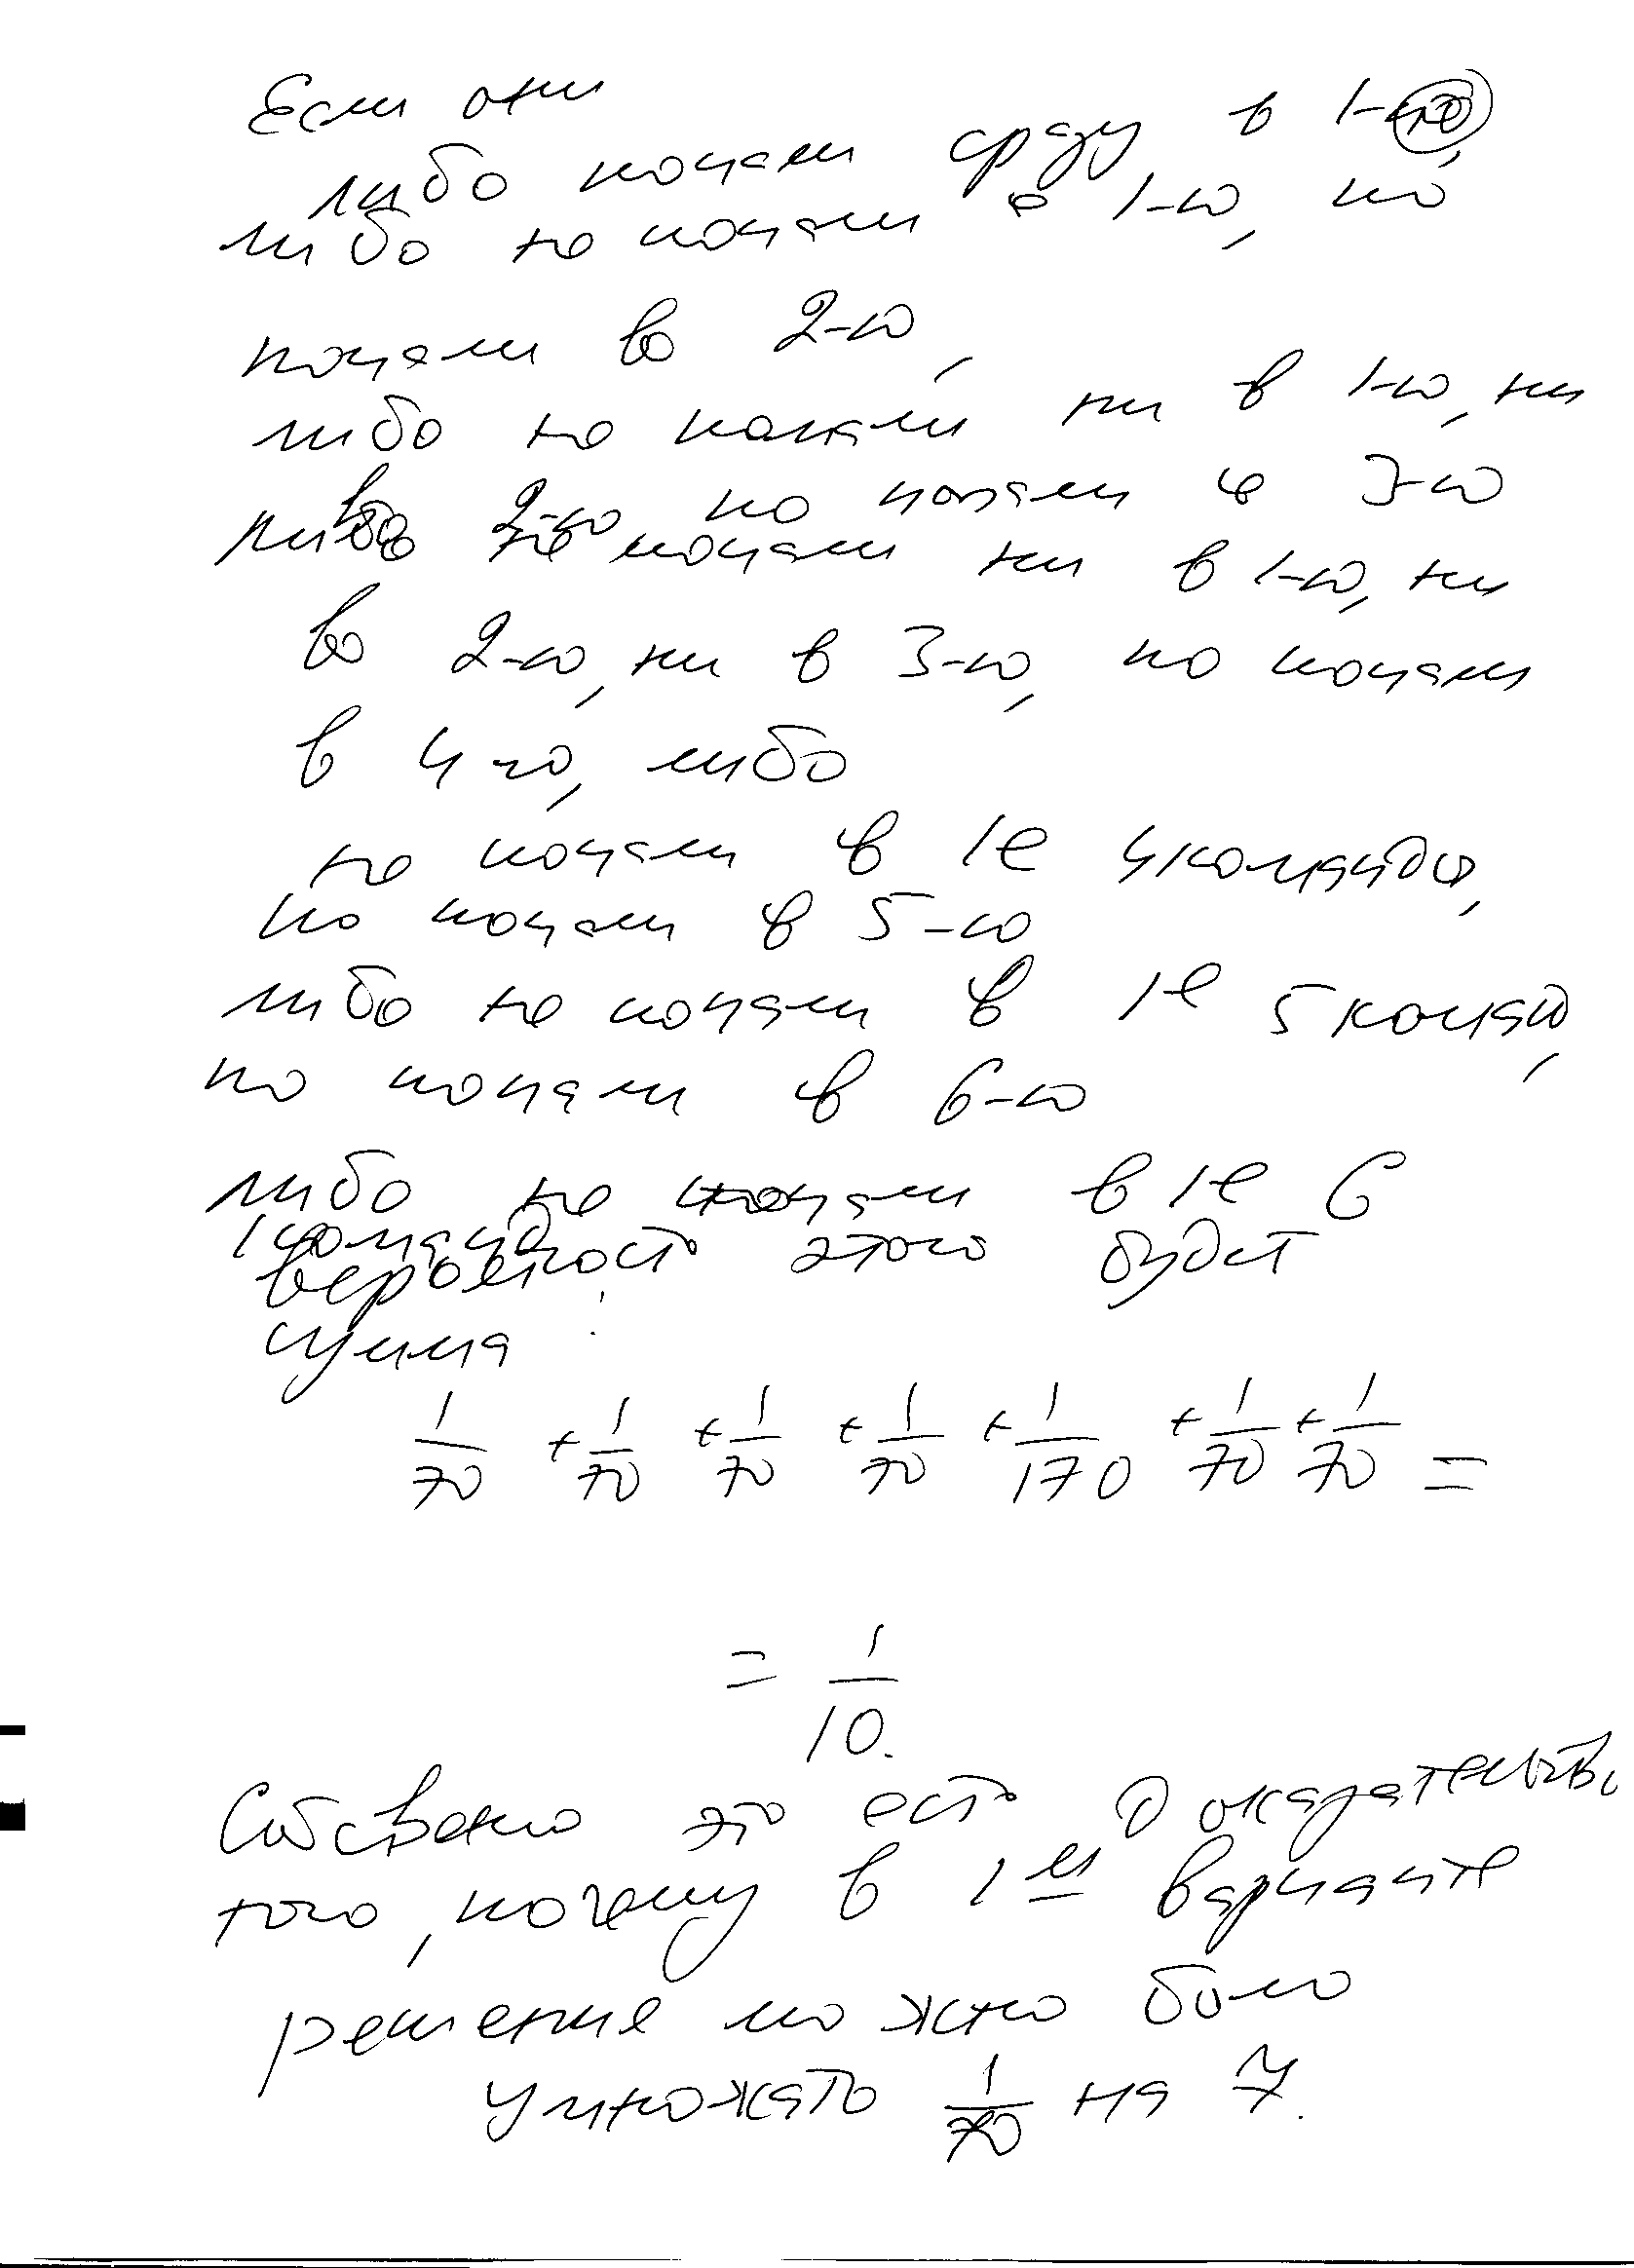 Если они
либо попали сразу в 1-ю,
либо не попали в 1-ю, но
попали во 2-ю,
либо не попали ни в 1-ю, ни
во 2-ю но попали в 3-ю
либо не попали ни в 1-ю, ни
во 2-ю, ни в 3-ю, но попали
в 4-ю, либо
не попали в 1е 4 команды,
но попали в 5-ю
либо не попали в 1е 5 команд,
но попали в 6-ю
либо не попали в 1е 6
команд
вероятность этого будет
сумма:
1/70 + 1/70 + 1/70 + 1/70 + 1/170 + 1/70 + 1/70 =
= 1/10.
Собствено это есть доказательство
того, почему в 1м варианте
решение можно было
умножать 1/70 на 7.